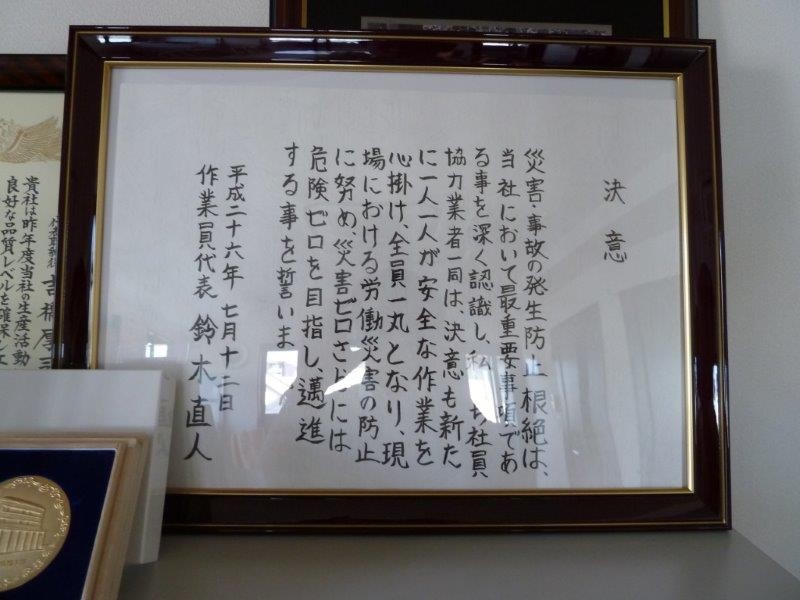 決意
災害・事故の発生防止、根絶は、
当社において最重要事項であ
る事を深く認識し、私 社員
協力業者一同は、決意も新た
に一人一人が安全な作業を
心掛け、全員一丸となり、現
場における労働災害の防止
に努め、災害ゼロさらには
危険ゼロを目指し、邁進
する事を誓いま
平成二十六年 七月十二日
作業員代表 鈴木直人
貴社は昨年度当社の生産活動
良好な品質レベルを確保し